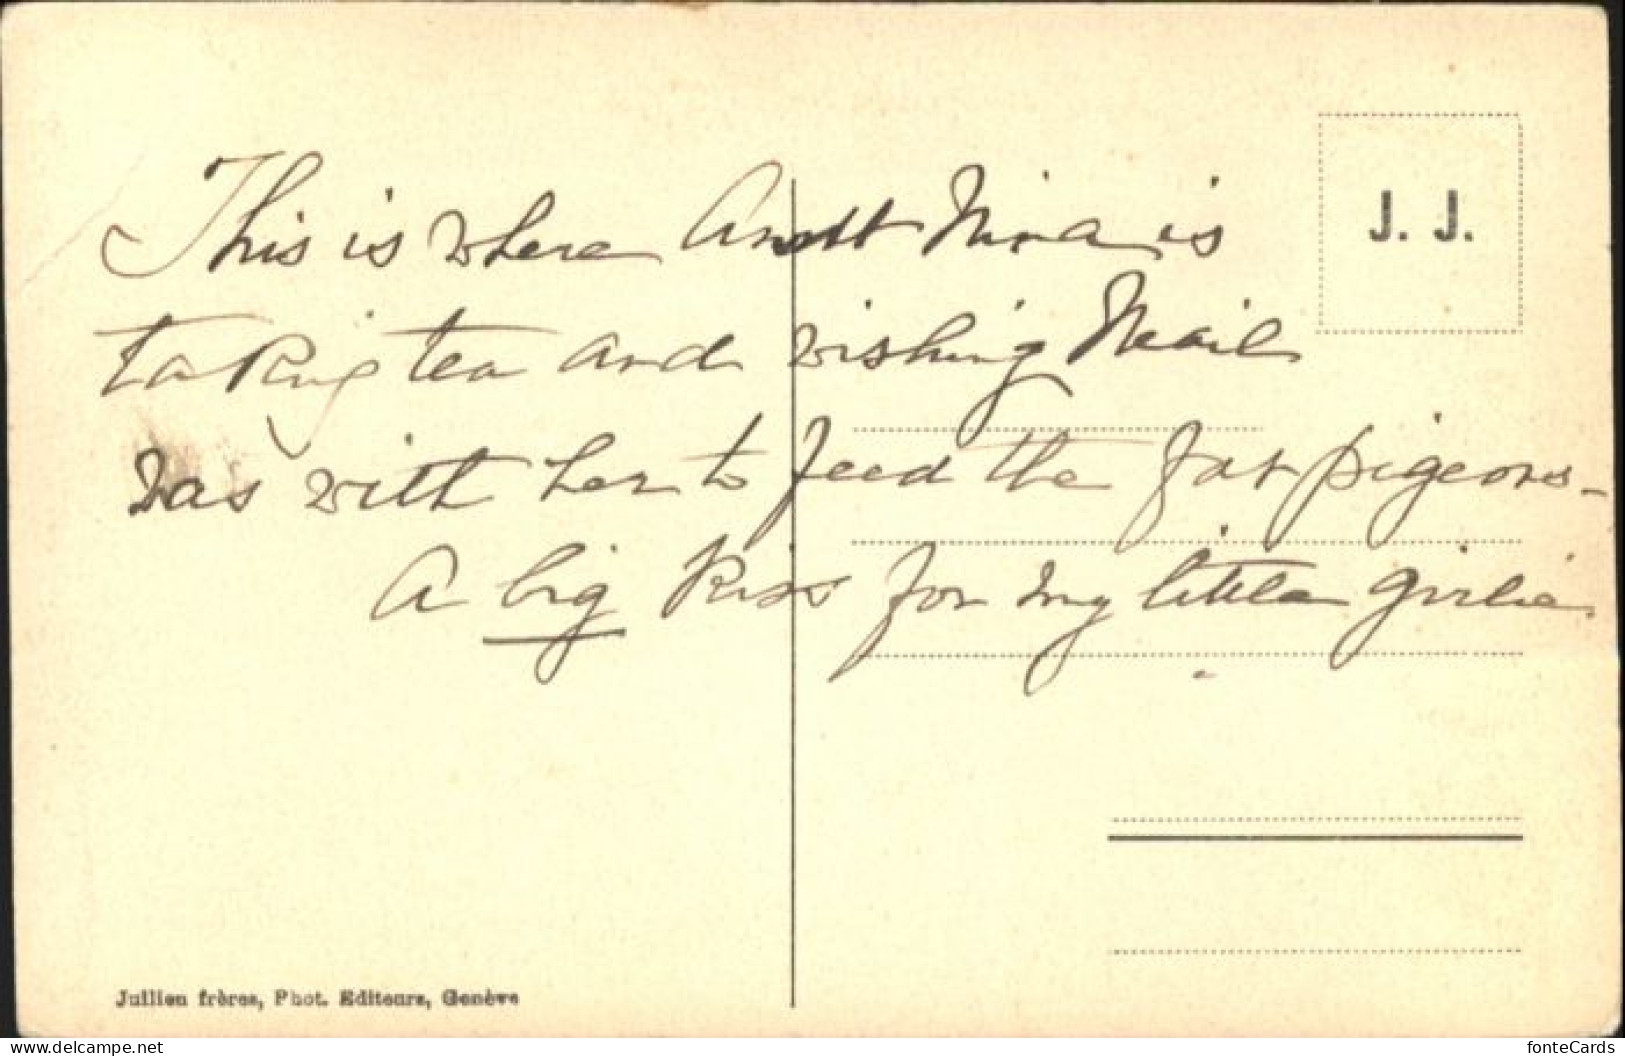 This is where Aunt Nina is
taking tea and wishing
was with her to feed the fat pigeons -
A big kiss for my little girlie.
J. J.
Jullien frères, Phot. Editeurs, Genève
www.delcampe.net
fonteCards